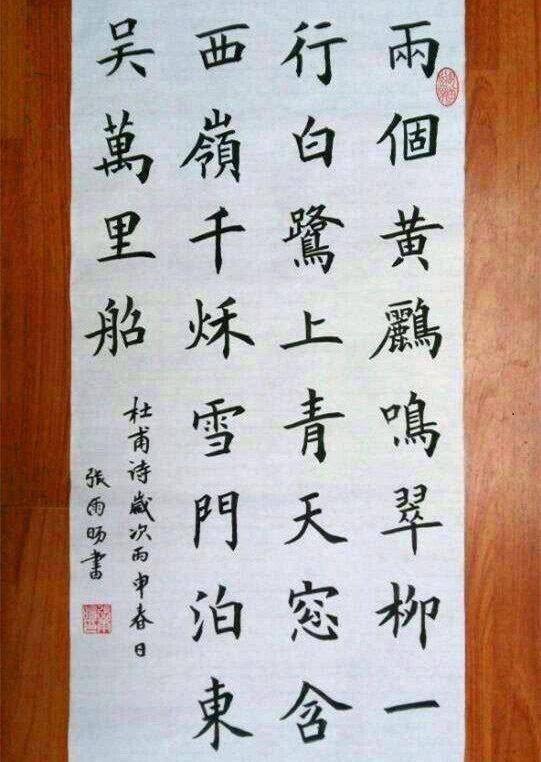 兩個黃鸝鳴翠柳一
行白鷺上青天窓含
西嶺千秌雪門泊東
吴萬里船
杜甫诗歲次丙申春日
張雨旸書